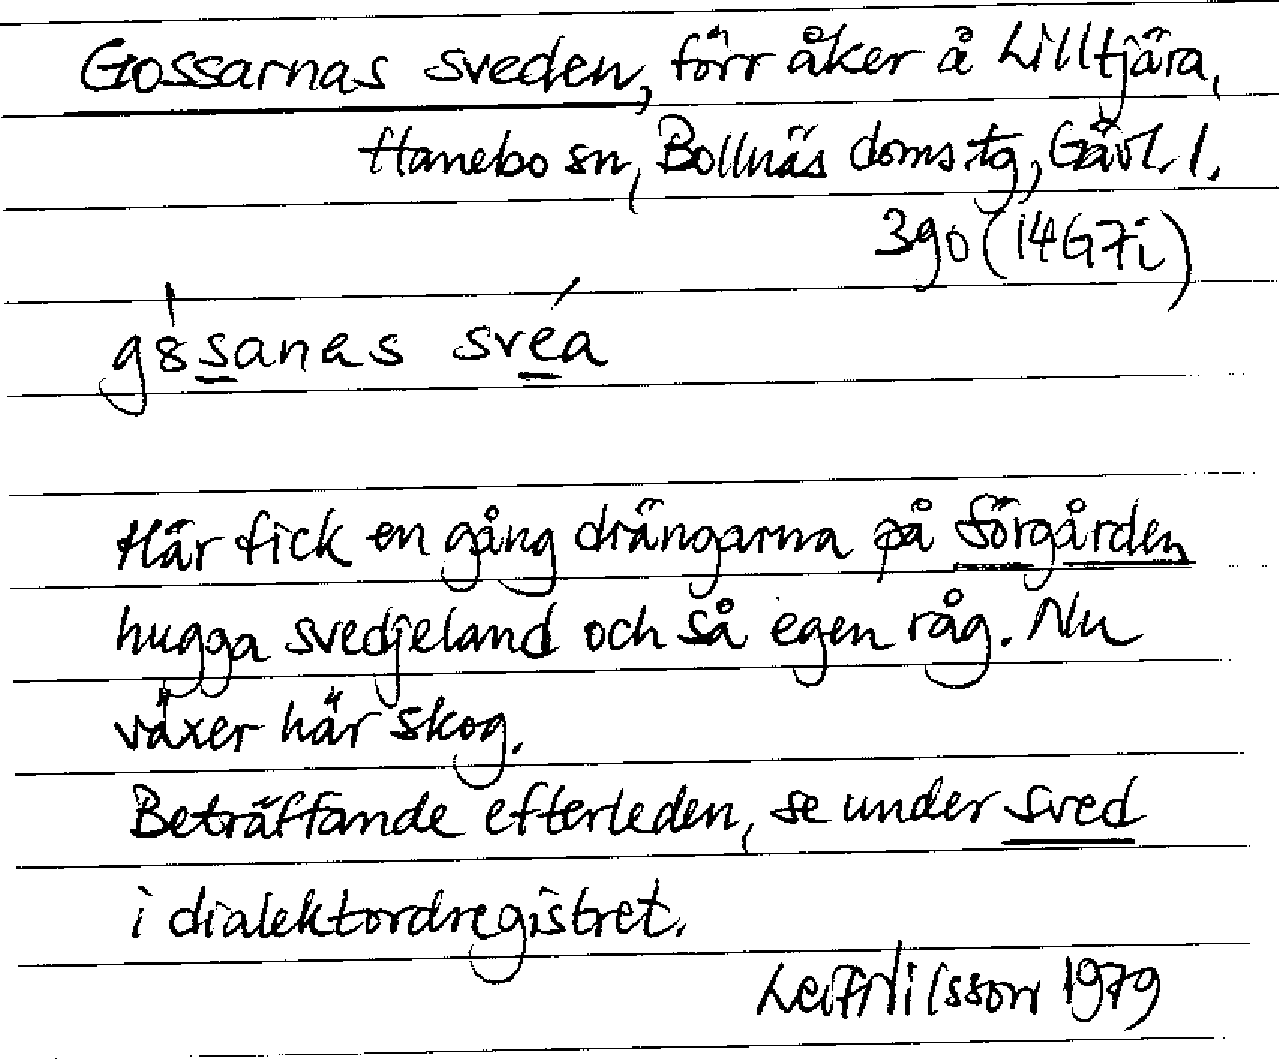 Gossarnas sveden, förr åker å Lilltjära,
Hanebo sn, Bollnäs domstg, Gävl. l.
3go (14G7i)
g8sanas svéa
Här fick en gång drängarna på Sörgården
hugga svedjeland och så egen råg. Nu
växer här skog.
Beträffande efterleden, se under sved
i dialektordregistret.
Leif Nilsson 1979